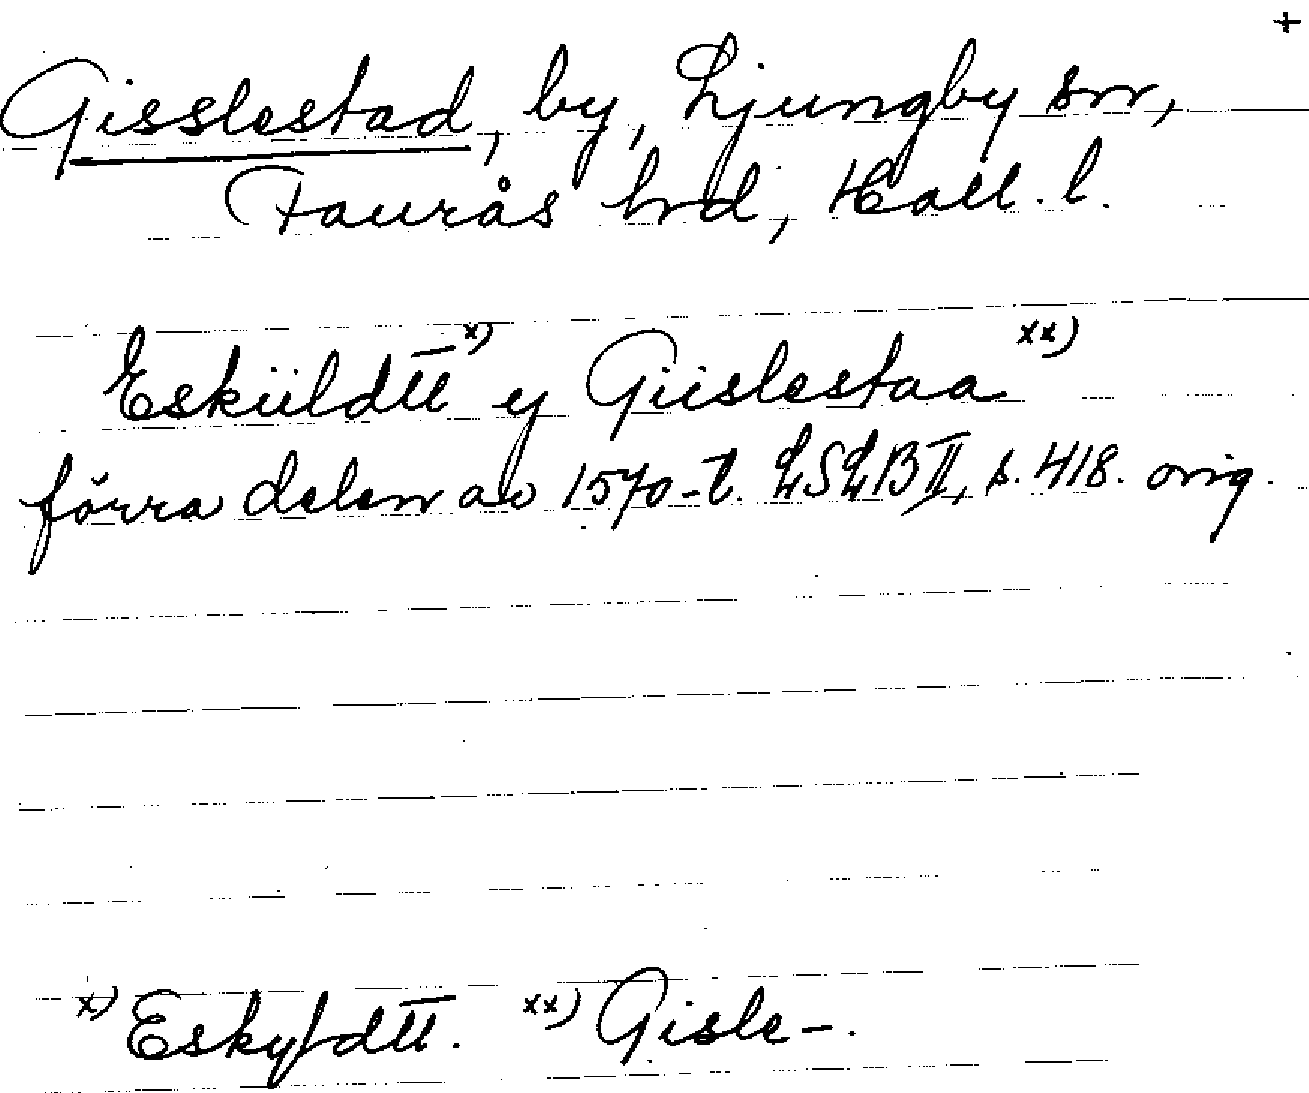 +
Gisslestad, by, Ljungby sn,
Faurås hd, Hall. l.
Esküldtt x) y Giislestaa xx)
förra delen av 1570-t. LSLB II, s. 418. orig.
x) Eskyldtt. xx) Gisle-.